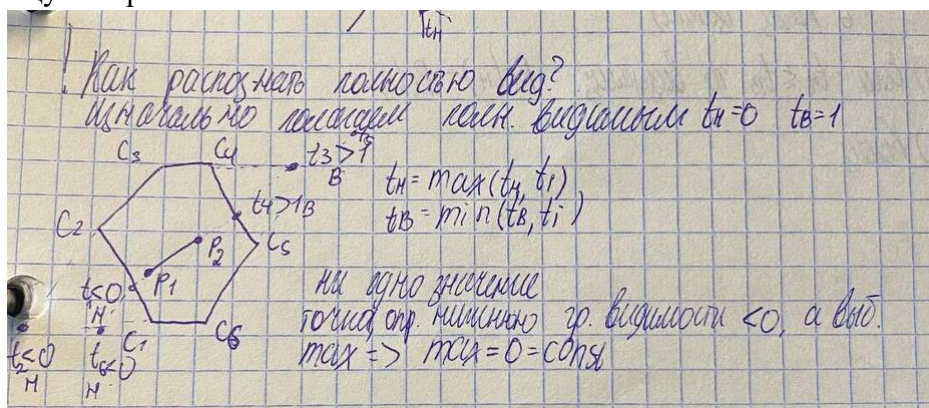 tн
! Как распознать полностью вид?
изначально полагаем полн. видимым tн=0 tв=1
C3 C4 t3>1
В
tн = max(tн, ti)
t4>1 В
tв = min(tв, ti)
C2 C5
P2
P1
t1<0
Н
ни одно значение
точка, опр. нижнюю гр. видимости <0, а выб.
C1 C6
max => max = 0 = const
t2<0 t6<0
Н Н